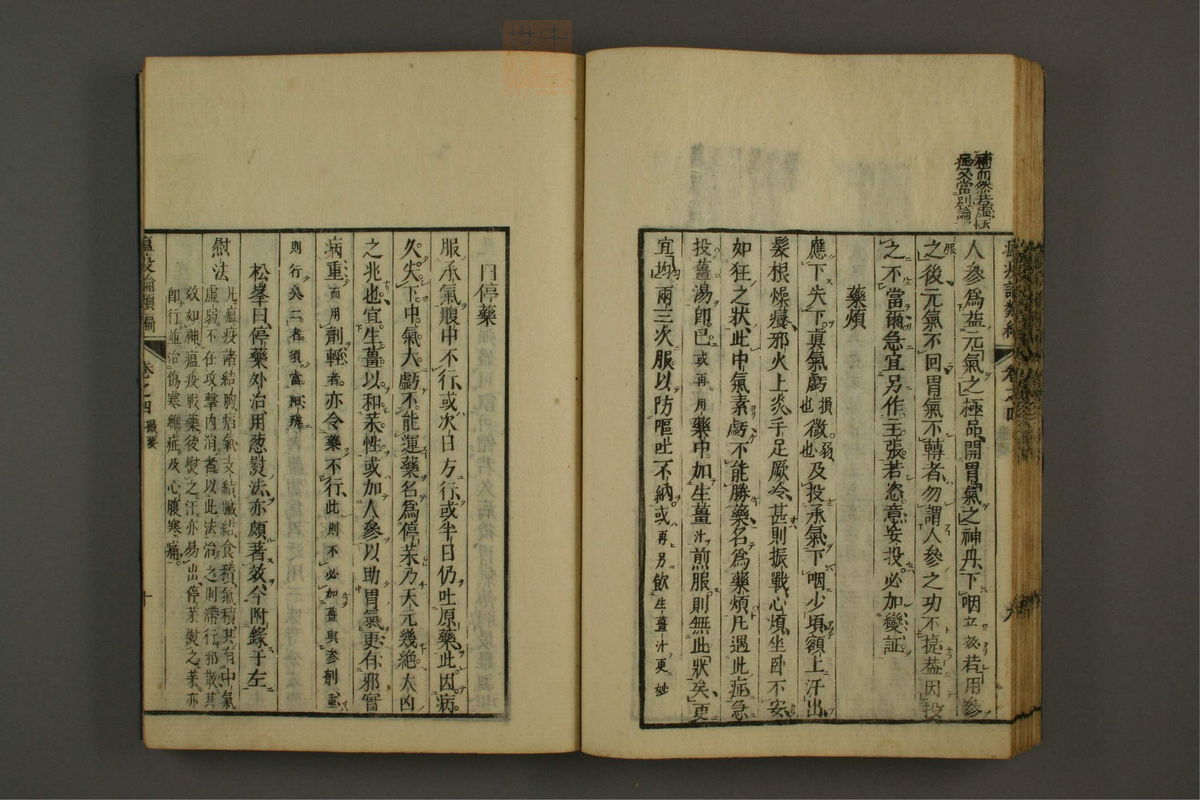 補而然若虛怯
瘟又當別論
人參爲益元氣之極品開胃氣之神丹下咽立效若用參
之後元氣不回胃氣不轉者勿謂人參之功不捷蓋因投
服
之不當爾急宜另作主張若恣意妄投必加變証
藥煩
應下失下眞氣虧損也微弱也及投承氣下咽少頃額上汗出
髮根燥癢邪火上炎手足厥冷甚則振戰心煩坐臥不安
如狂之狀此中氣素虧不能勝藥名爲藥煩凡遇此症急
投薑湯卽已或再用藥中加生薑汁煎服則無此狀矣更
宜均兩三次服以防嘔吐不納或再另飮生薑汁更妙
停藥
服承氣腹中不行或次日方行或半日仍吐原藥此因病
久失下中氣大虧不能運藥名爲停茉乃天元幾絕大凶
之兆也宜生薑以和茉性或加人參以助胃氣更有邪實
病重而用劑輕者亦令藥不行此則不必加薑與參劑重
則行矣二者須富細辨
松峯曰停藥外治用葱熨法亦頗著效今附錄于左
熨法
凡瘟疫諸結胸痞氣支結臟結食積氣積其有中氣
虛弱不在攻擊內消者以此法治之則滯行邪散其
效如神瘟疫服藥後熨之汗亦易出停茉熨之茉亦
卽行並治傷寒雜症及心腹寒痛
瘟疫論類編
卷之四
撮要
十